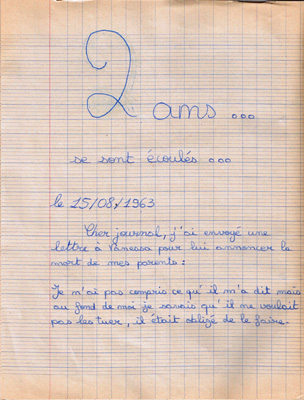 2 ans...
se sont écoulés...
le 15/08/1963
Cher journal, j'ai envoyé une
lettre à Vanessa pour lui annoncer la
mort de mes parents :
Je n'ai pas compris ce qu'il m'a dit mais
au fond de moi je savais qu'il ne voulait
pas les tuer, il était obligé de le faire.